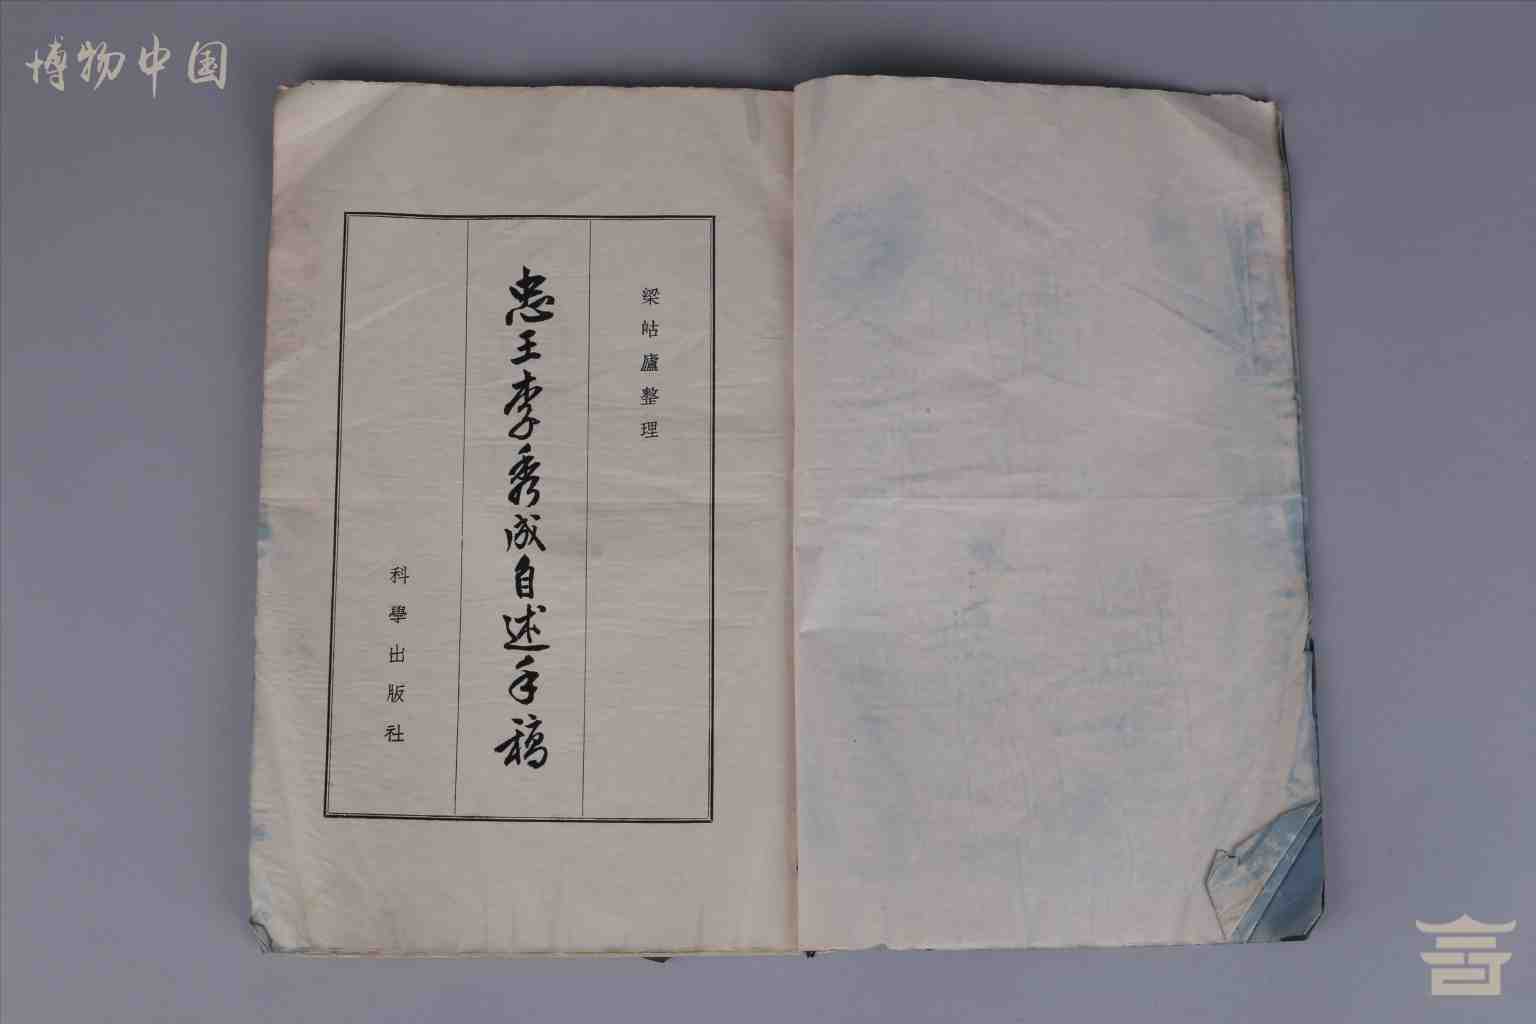 博物中国
梁岵廬整理
忠王李秀成自述手稿
科學出版社